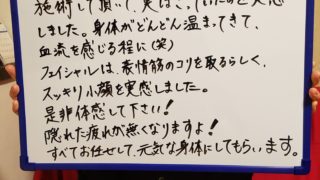 施術して頂いて、実はこっていたのと実感
しました。身体がどんどん温まってきて、
血流を感じる程に(笑)
フェイシャルは、表情筋のコリを取るらしく、
スッキリ小顔を実感しました。
是非体感して下さい!
隠れた疲れが無くなりますよ!
すべてお任せして、元気な身体にしてもらいます。